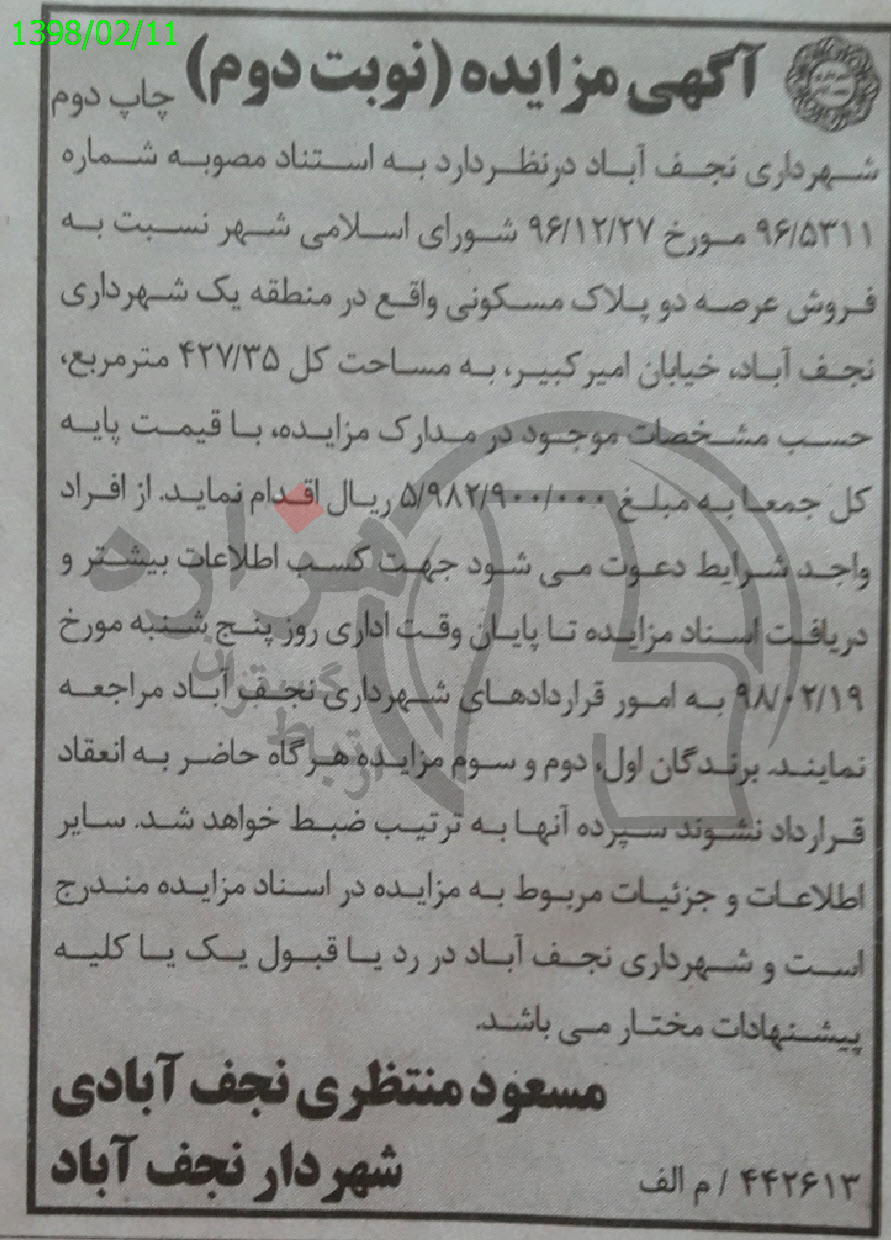 1398/02/11
آگهی مزایده (نوبت دوم)
چاپ دوم
شهرداری نجف آباد درنظردارد به استناد مصوبه شماره
۹۶/۵۳۱۱ مورخ ۹۶/۱۲/۲۷ شورای اسلامی شهر نسبت به
فروش عرصه دو پلاک مسکونی واقع در منطقه یک شهرداری
نجف آباد، خیابان امیرکبیر، به مساحت کل ۴۲۷/۳۵ مترمربع،
حسب مشخصات موجود در مدارک مزایده، با قیمت پایه
کل جمعا به مبلغ ۵/۹۸۲/۹۰۰/۰۰۰ ریال اقدام نماید. از افراد
واجد شرایط دعوت می شود جهت کسب اطلاعات بیشتر و
دریافت اسناد مزایده تا پایان وقت اداری روز پنج شنبه مورخ
۹۸/۰۲/۱۹ به امور قراردادهای شهرداری نجف آباد مراجعه
نمایند. برندگان اول، دوم و سوم مزایده هرگاه حاضر به انعقاد
قرارداد نشوند سپرده آنها به ترتیب ضبط خواهد شد. سایر
اطلاعات و جزئیات مربوط به مزایده در اسناد مزایده مندرج
است و شهرداری نجف آباد در رد یا قبول یک یا کلیه
پیشنهادات مختار می باشد.
مسعود منتظری نجف آبادی
شهردار نجف آباد
۴۴۲۶۱۳ / م الف
هزاره
گستره
ارتباط